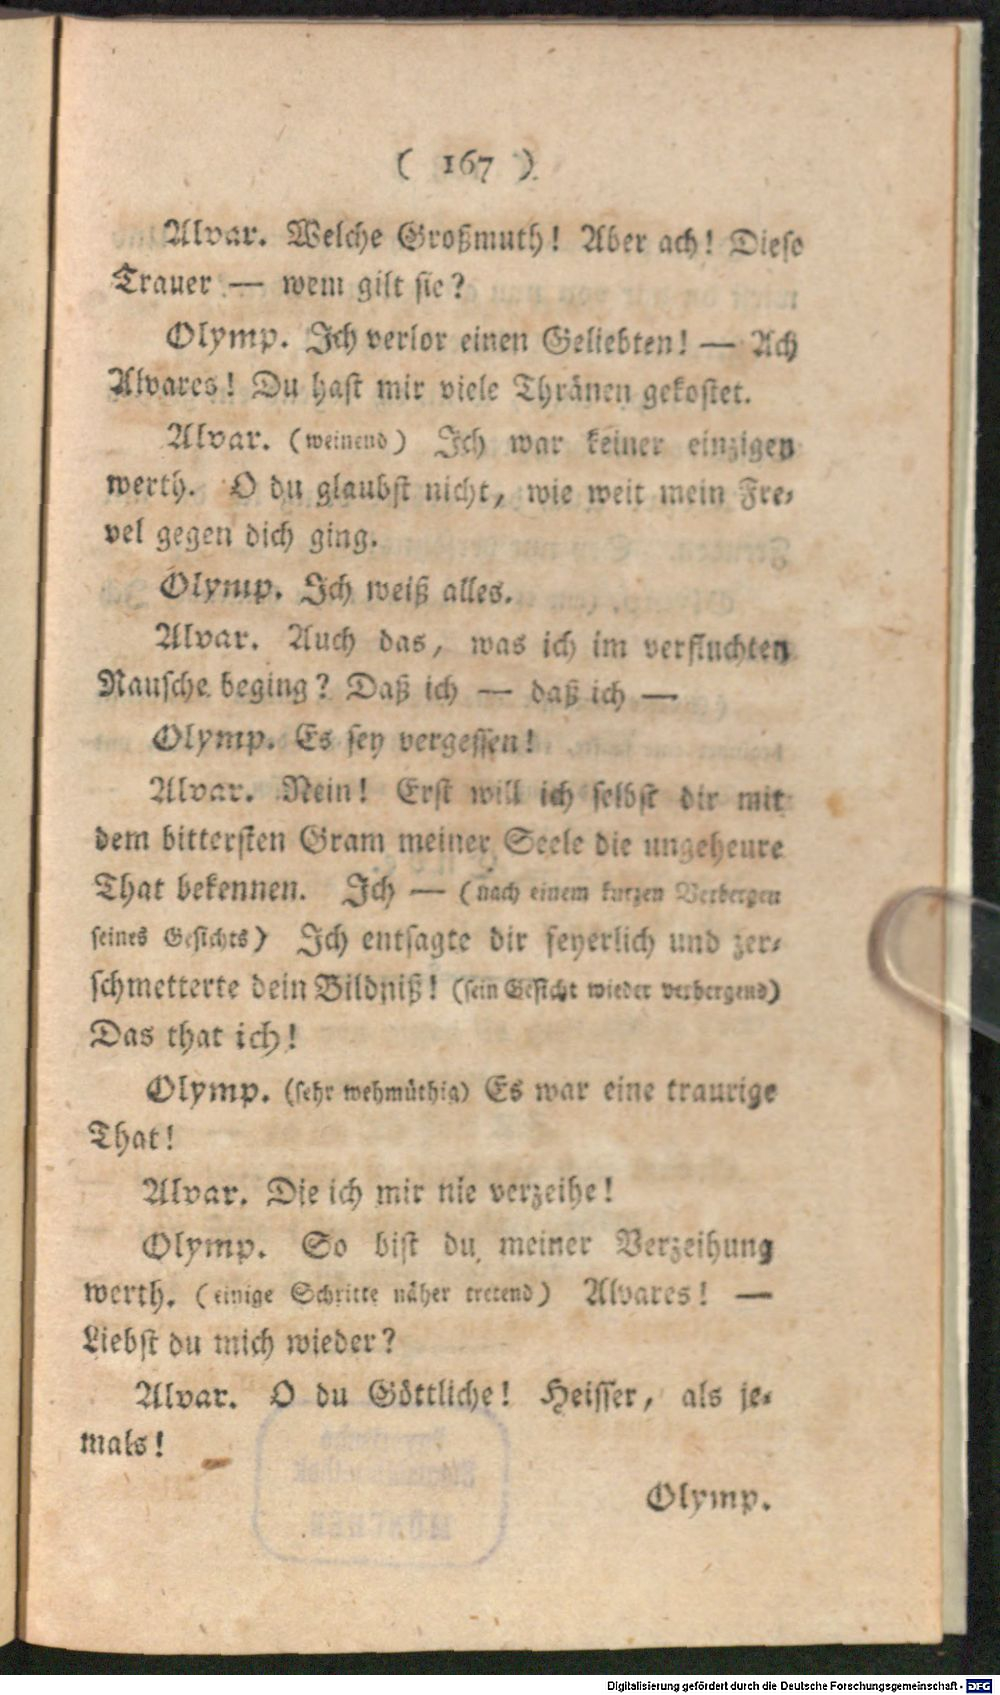 ( 167 )
Alvar. Welche Großmuth! Aber ach! Diese
Trauer — wem gilt sie?
Olymp. Ich verlor einen Geliebten! — Ach
Alvares! Du hast mir viele Thränen gekostet.
Alvar. (weinend) Ich war keiner einzigen
werth. O du glaubst nicht, wie weit mein Fre-
vel gegen dich ging.
Olymp. Ich weiß alles.
Alvar. Auch das, was ich im verfluchten
Rausche beging? Daß ich — daß ich —
Olymp. Es sey vergessen!
Alvar. Nein! Erst will ich selbst dir mit
dem bittersten Gram meiner Seele die ungeheure
That bekennen. Ich — (nach einem kurzen Verbergen
seines Gesichts) Ich entsagte dir feyerlich und zer-
schmetterte dein Bildniß! (sein Gesicht wieder verbergend)
Das that ich!
Olymp. (sehr wehmüthig) Es war eine traurige
That!
Alvar. Die ich mir nie verzeihe!
Olymp. So bist du meiner Verzeihung
werth. (einige Schritte näher tretend) Alvares! —
Liebst du mich wieder?
Alvar. O du Göttliche! Heisser, als je-
mals!
Olymp.
Digitalisierung gefördert durch die Deutsche Forschungsgemeinschaft - DFG